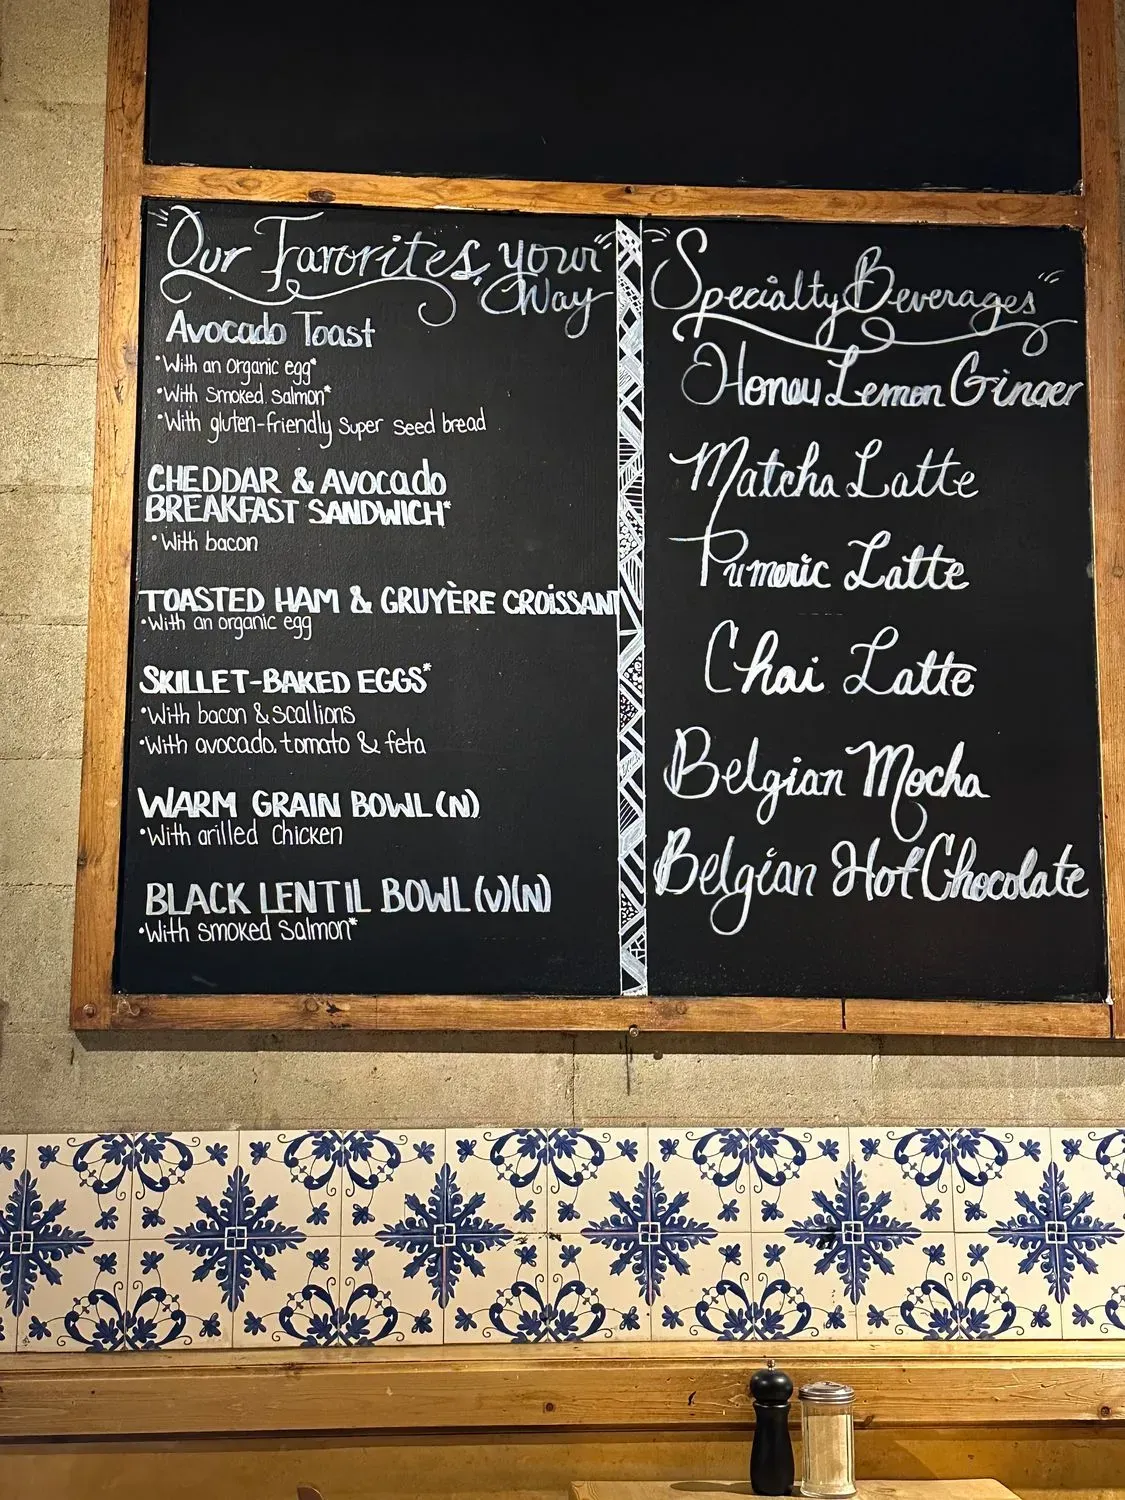 "Our Favorites, your"
Way
Avocado Toast
•With an organic egg*
•With smoked salmon*
•With gluten-friendly Super seed bread
CHEDDAR & Avocado
BREAKFAST SANDWICH*
•With bacon
TOASTED HAM & GRUYÈRE CROiSSANT
•With an organic egg
SKILLET-BAKED EGGS*
•With bacon & scallions
•With avocado, tomato & feta
WARM GRAIN BOWL (N)
•With grilled chicken
BLACK LENTIL BOWL (V)(N)
•With smoked salmon*
"Specialty Beverages"
Honey Lemon Ginger
Matcha Latte
Tumeric Latte
Chai Latte
Belgian Mocha
Belgian Hot Chocolate